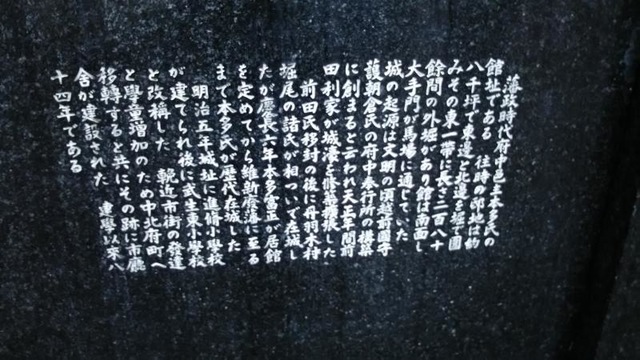 藩政時代府中邑主本多氏の
館址である 往時の邸地は約
八千坪で東辺と北辺を堀で囲
みその東一帯に長さ二百八十
餘間の外堀があり館は南面し
大手門が馬場に通じていた
城の起源は文明の頃越前国守
護朝倉氏の府中奉行所の構築
に創まると云われ天正年間前
田利家が城濠を修築擴張した
前田氏移封の後に丹羽木村
堀尾の諸氏が相ついで在城し
たが慶長六年本多富正が居館
を定めてから維新廃落に至る
まで本多氏が歴代在城した
明治五年城址に進脩小学校
が建てられ後に武生東小學校
と改稱した 輓近市街の發達
と學童増加のため中北府町へ
移轉すると共にその跡に市廳
舎が建設された 建學以来八
十四年である